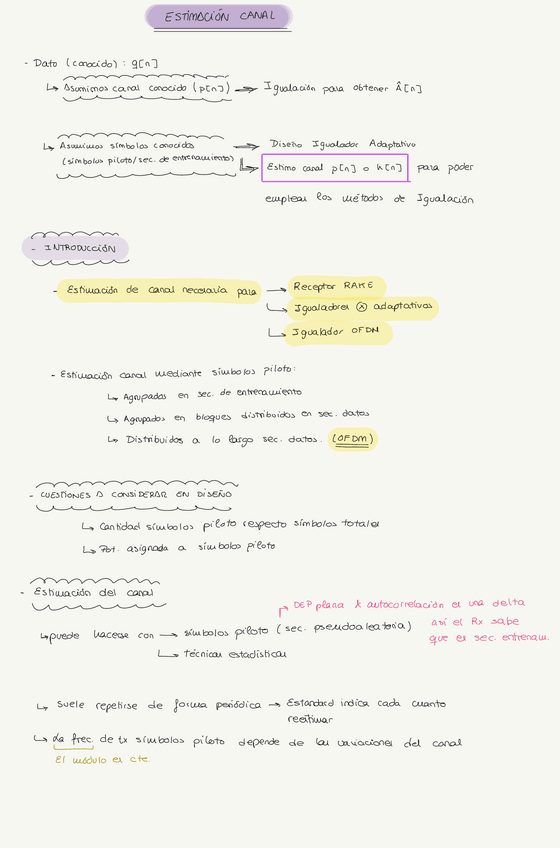 ESTIMACIÓN CANAL
- Dato (conocido) : q[n]
↳ Asumimos canal conocido (p[n]) ⟹ Igualación para obtener Â[n]
↳ Asumimos símbolos conocidos ⟹ Diseño Igualador Adaptativo
(símbolos piloto/sec. de entrenamiento) ↳ Estimo canal p[n] o h[n] para poder
emplear los métodos de Igualación
- INTRODUCCIÓN
- Estimación de canal necesaria para → Receptor RAKE
↳ Igualadores ⊗ adaptativos
↳ Igualador OFDM
- Estimación canal mediante símbolos piloto:
↳ Agrupados en sec. de entrenamiento
↳ Agrupados en bloques distribuidos en sec. datos
↳ Distribuidos a lo largo sec. datos. (OFDM)
- CUESTIONES A CONSIDERAR EN DISEÑO
↳ Cantidad símbolos piloto respecto símbolos totales
↳ Pot. asignada a símbolos piloto
- Estimación del canal
DEP plana & autocorrelación es una delta
así el Rx sabe
que es sec. entrenam.
↳ puede hacerse con → símbolos piloto (sec. pseudoaleatoria)
↳ técnicas estadísticas
↳ Suele repetirse de forma periódica → Estandard indica cada cuanto
reestimar
↳ La frec. de tx símbolos piloto depende de las variaciones del canal
El módulo es cte.